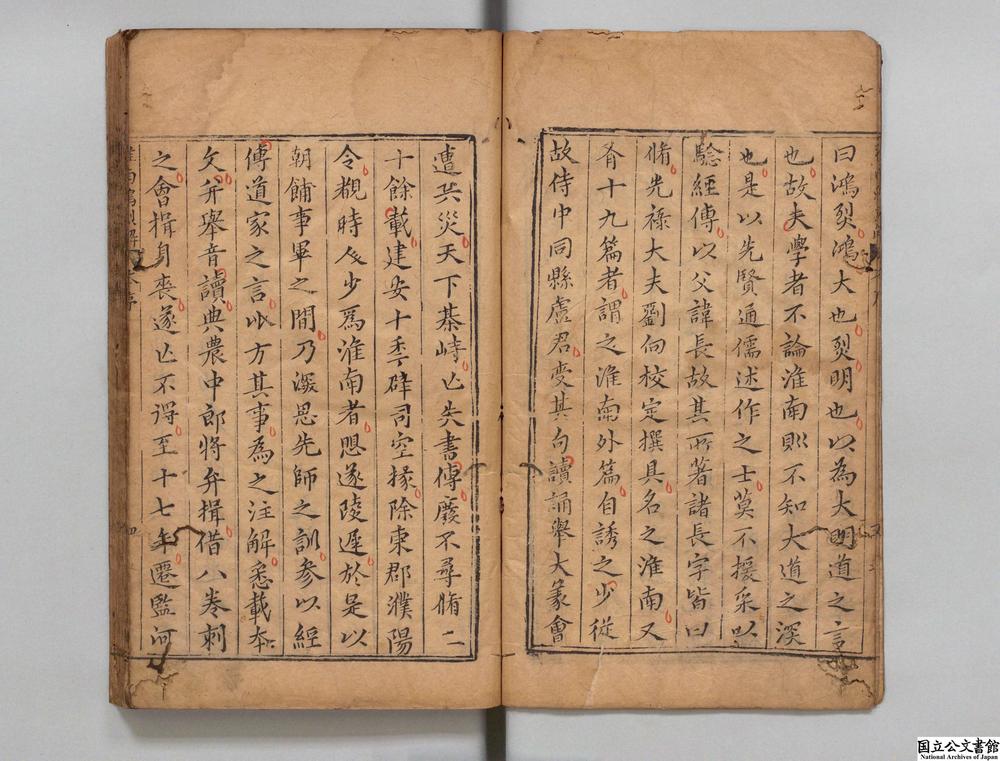 曰鴻烈鴻大也烈明也以為大明道之言
也故夫學者不論淮南則不知大道之深
也是以先賢通儒述作之士莫不援采以
驗經傳以父諱長故其所著諸長字皆曰
脩光祿大夫劉向校定撰具名之淮南又
有十九篇者謂之淮南外篇自誘之少從
故侍中同縣盧君受其句讀誦舉大義會
遭兵災天下棊峙亡失書傳廢不尋脩二
十餘載建安十年辟司空掾除東郡濮陽
令覩時人少為淮南者思遂陵遲於是以
朝餔事畢之間乃深思先師之訓參以經
傳道家之言比方其事為之注解悉載本
文并舉音讀典農中郎將弁揖借八卷刺
之會揖身喪遂亡不得至十七年遷監河
国立公文書館
National Archives of Japan